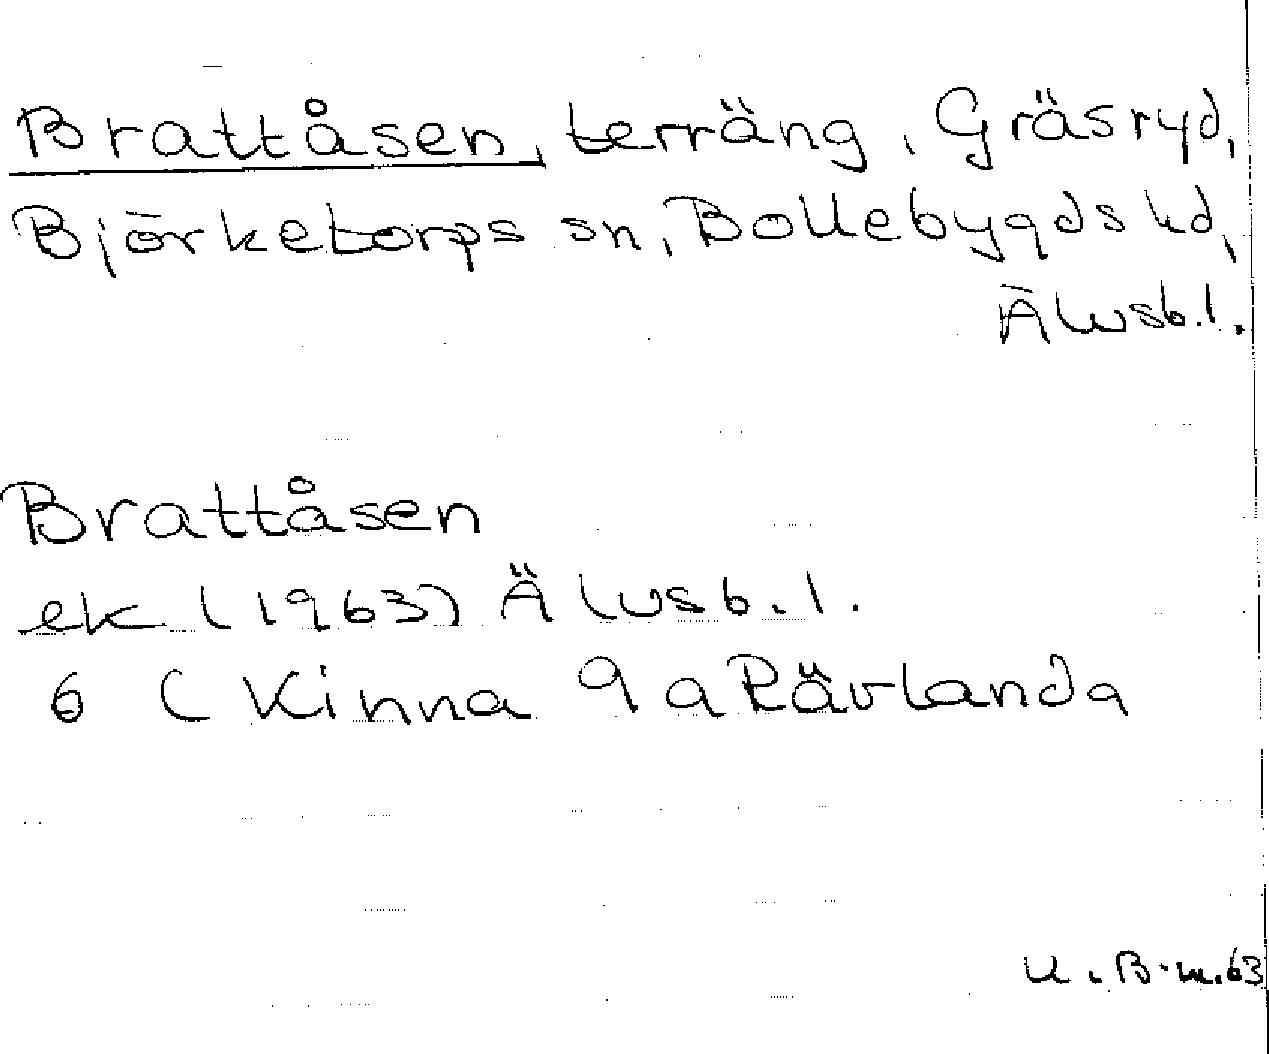 Brattåsen, terräng, Gräsryd,
Björketorps sn, Bollebygds hd,
Älvsb.l.
Brattåsen
ek (1963) Älvsb.l.
6 (Kinna 9a Rävlanda
U.B-m.63